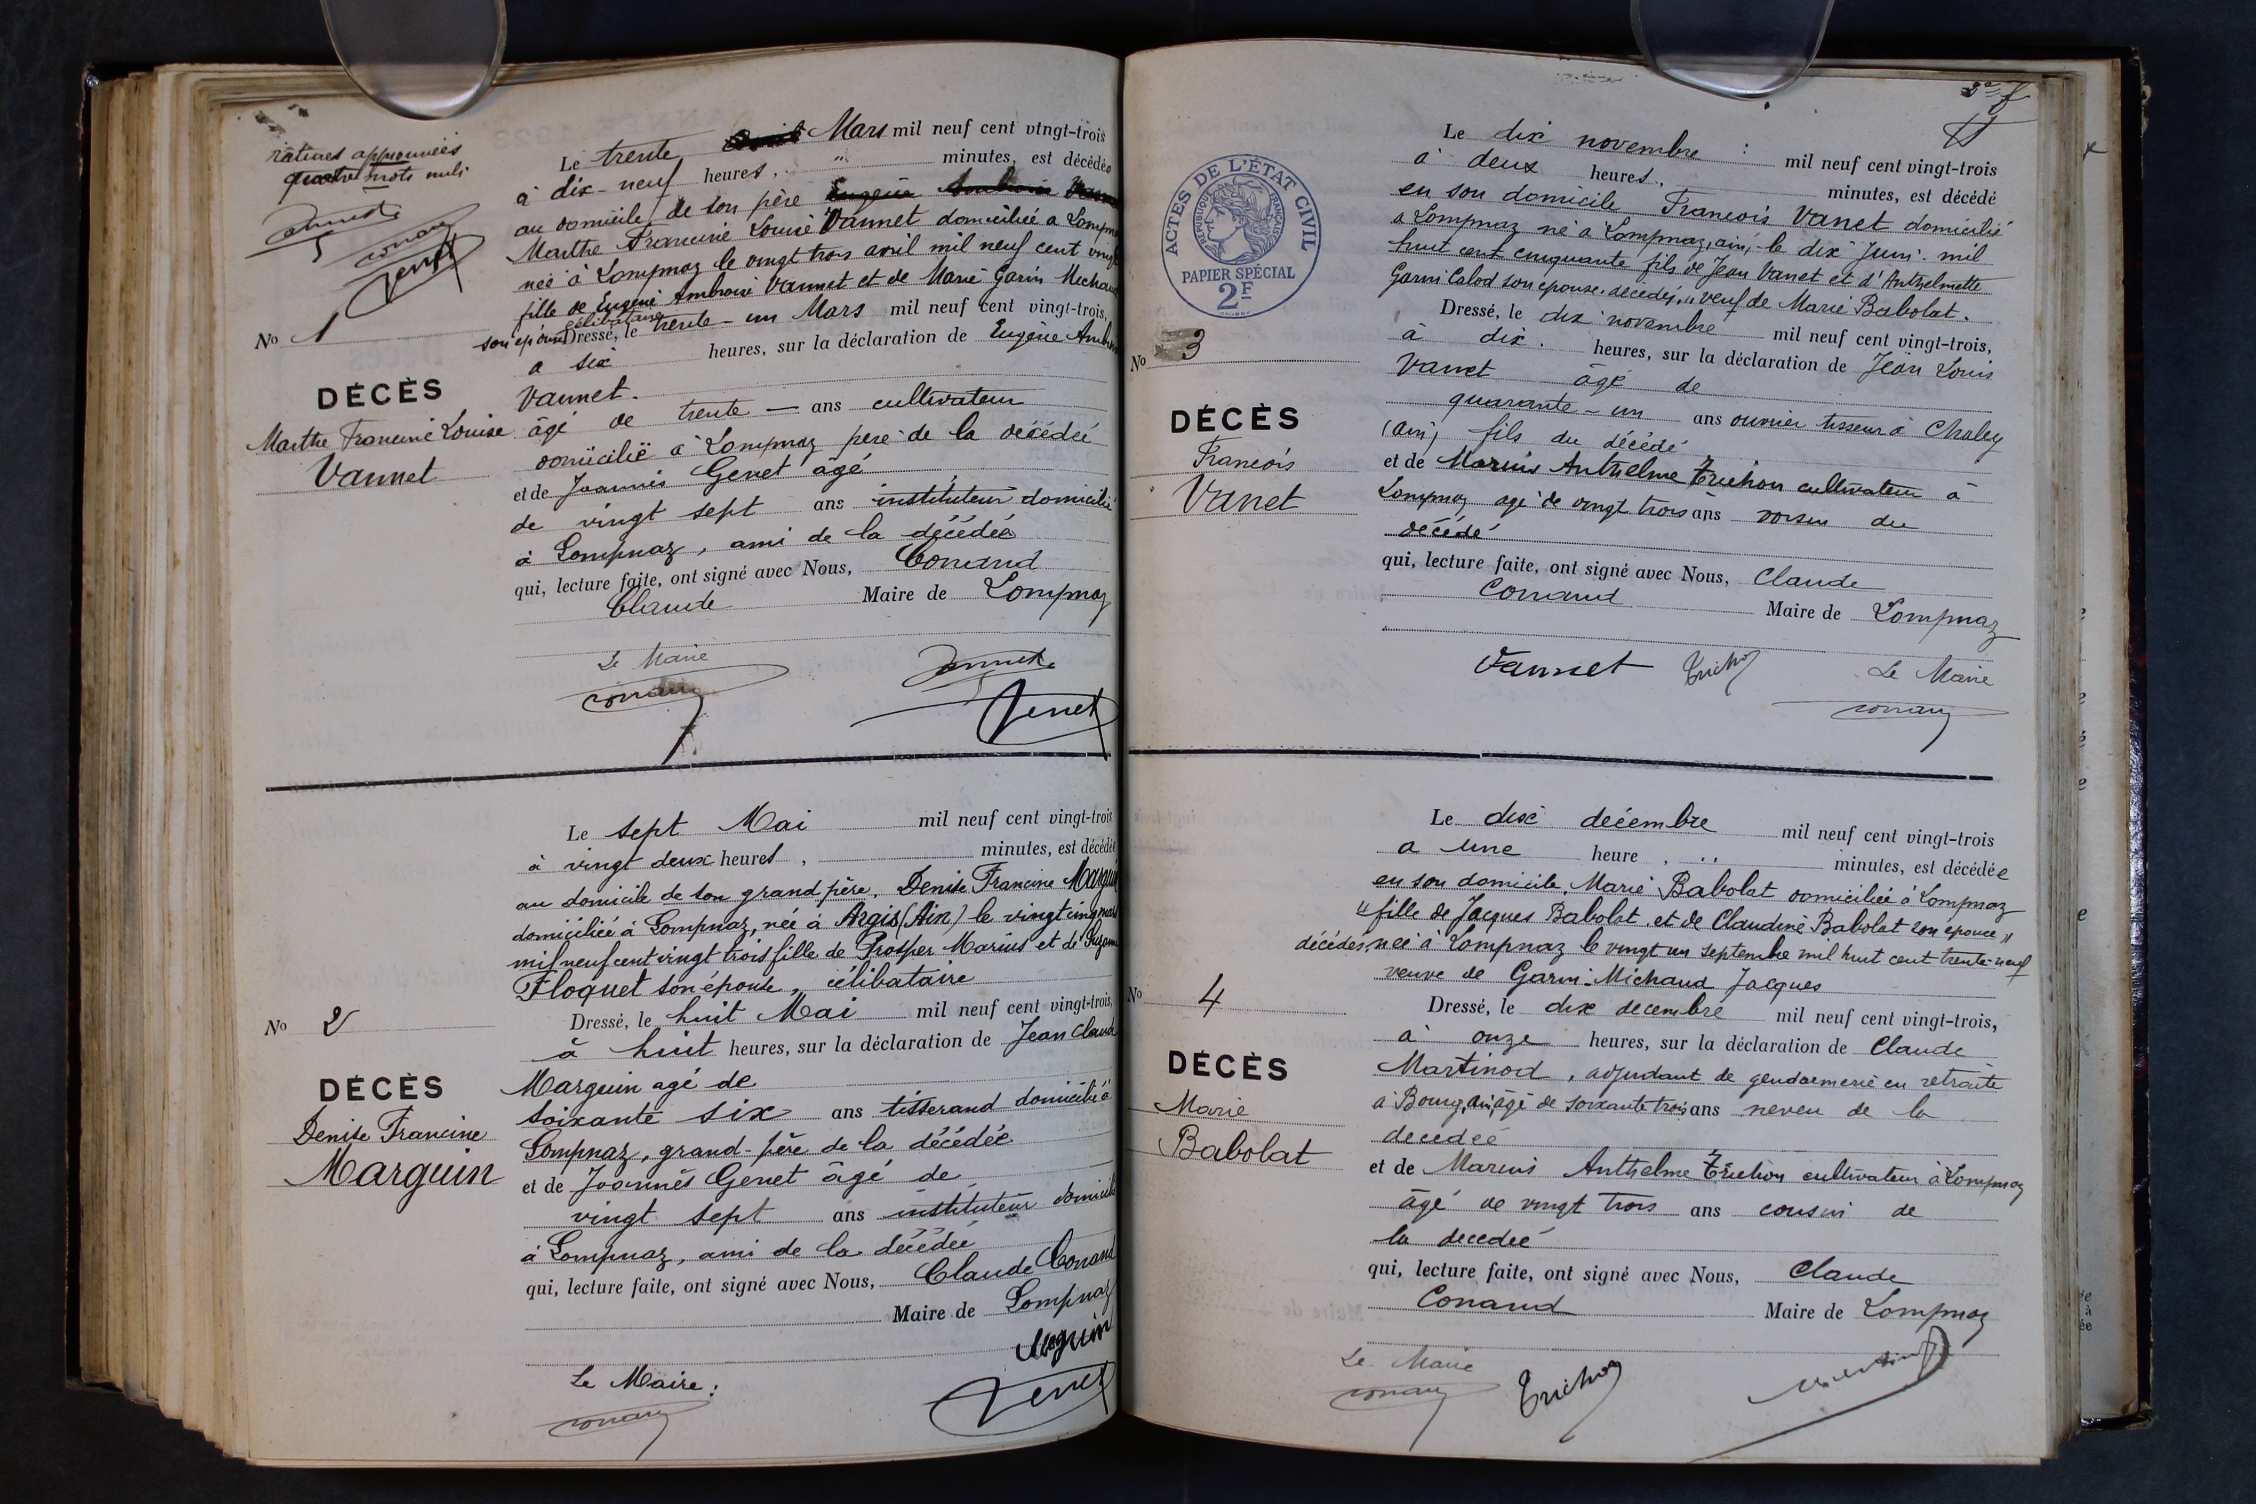 ratures approuvées
quatre mots nuls
No 1
DÉCÈS
Marthe Francine Louise
Vannet
Le trente Mars mil neuf cent vingt-trois
à dix-neuf heures, " minutes, est décédée
au domicile de son père
Marthe Francine Louise Vannet domiciliée a Lompna
née à Lompnaz le vingt trois avril mil neuf cent vingt
fille de Eugène Ambroise Vannet et de Marie Garin Mechaud
son épouse célibataire
Dressé, le trente-un Mars mil neuf cent vingt-trois,
a six heures, sur la déclaration de Eugène Ambroise
Vannet.
âgé de trente — ans cultivateur
domicilié à Lompnaz père de la décédée
et de Joannès Genet âgé
de vingt sept ans instituteur domicilié
à Lompnaz, ami de la décédée
qui, lecture faite, ont signé avec Nous, Conand
Claude Maire de Lompnaz
Le Maire
Conand
Vannet
Genet
No 2
DÉCÈS
Denise Francine
Marguin
Le sept Mai mil neuf cent vingt-trois
à vingt deux heures, minutes, est décédée
au domicile de son grand père, Denise Francine Marguin
domiciliée à Lompnaz, née à Argis (Ain) le vingt cinq mars
mil neuf cent vingt trois fille de Prosper Marius et de Suzanne
Floquet son épouse, célibataire
Dressé, le huit Mai mil neuf cent vingt-trois,
à huit heures, sur la déclaration de Jean Claude
Marguin agé de
soixante six ans tisserand domicilié à
Lompnaz, grand-père de la décédée
et de Joannès Genet âgé de
vingt sept ans instituteur domicilié
à Lompnaz, ami de la décédée
qui, lecture faite, ont signé avec Nous, Claude Conand
Maire de Lompnaz
Marguin
Le Maire :
Conand
Genet
ACTES DE L'ÉTAT CIVIL
RÉPUBLIQUE FRANÇAISE
PAPIER SPÉCIAL
2F
No 3
DÉCÈS
Francois
Vanet
Le dix novembre : mil neuf cent vingt-trois
à deux heures, minutes, est décédé
en son domicile Francois Vanet domicilié
a Lompnaz né a Lompnaz, ain, le dix Juin mil
huit cent cinquante fils de Jean Vanet et d'Anthelmette
Garin Calod son epouse. décédés, " veuf de Marie Babolat.
Dressé, le dix novembre mil neuf cent vingt-trois,
à dix. heures, sur la déclaration de Jean Louis
Vanet âgé de
quarante-un ans ouvrier tisseur à Chaley
(Ain) fils du décédé
et de Marius Anthelme Trichon cultivateur à
Lompnaz agé de vingt trois ans voisin du
décédé
qui, lecture faite, ont signé avec Nous, Claude
Conand Maire de Lompnaz
Vannet Trichon Le Maire
Conand
No 4
DÉCÈS
Marie
Babolat
Le dix décembre mil neuf cent vingt-trois
a une heure, " minutes, est décédée
en son domicile, Marie Babolat domiciliée à Lompnaz
" fille de Jacques Babolat et de Claudine Babolat son epouce "
décédés, née à Lompnaz le vingt un septembre mil huit cent trente-neuf
veuve de Garin-Michaud Jacques
Dressé, le dix decembre mil neuf cent vingt-trois,
à onze heures, sur la déclaration de Claude
Martinod, adjudant de gendarmerie en retraite
à Bourg, ain, âgé de soixante trois ans neveu de la
decedée
et de Marius Anthelme Trichon cultivateur à Lompnaz
âgé de vingt trois ans cousin de
la decedée
qui, lecture faite, ont signé avec Nous, Claude
Conand Maire de Lompnaz
Le Maire
Conand Trichon Martinod